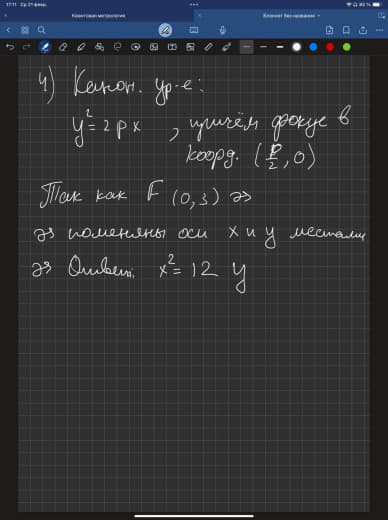 17:11 Ср 21 февр.
85 %
Квантовая метрология
Блокнот без названия
4) Канон. ур-е:
y²=2px, причём фокус в
коорд. (p/2, 0)
Так как F(0,3) =>
=> поменяны оси x и y местами
=> Ответ: x²=12 y